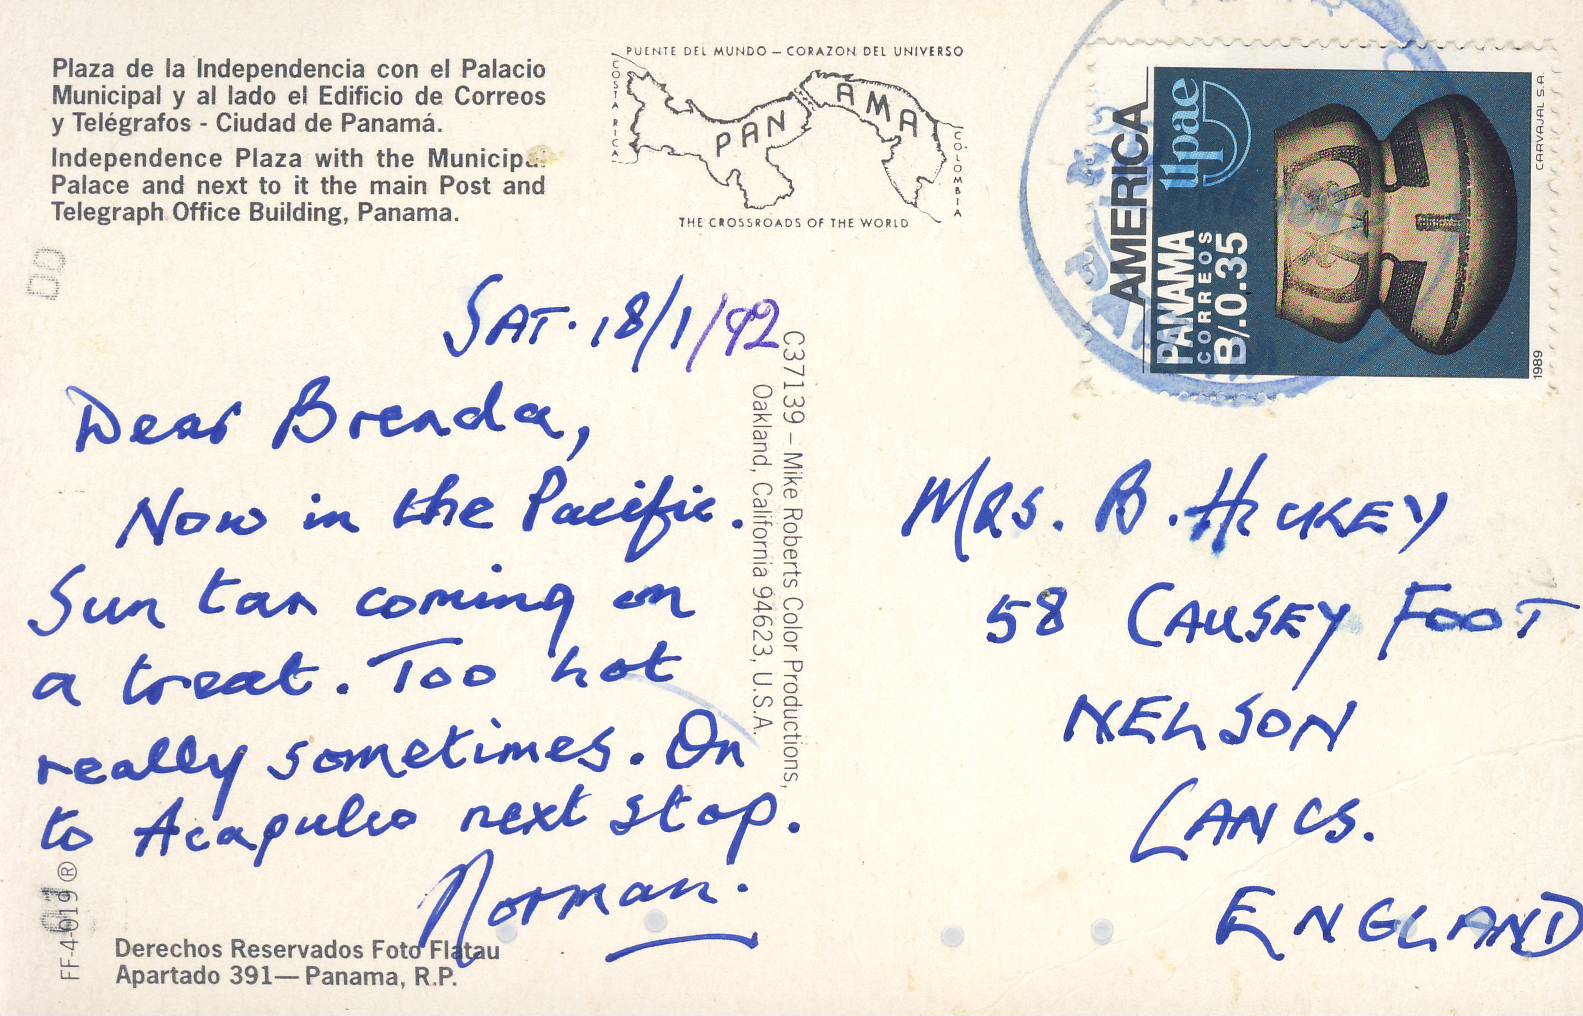 Plaza de la Independencia con el Palacio
Municipal y al lado el Edificio de Correos
y Telégrafos - Ciudad de Panamá.
Independence Plaza with the Municipal
Palace and next to it the main Post and
Telegraph Office Building, Panama.
PUENTE DEL MUNDO – CORAZON DEL UNIVERSO
COSTA RICA
PANAMA
COLOMBIA
THE CROSSROADS OF THE WORLD
AMERICA
upae
PANAMA
CORREOS
B/.0.35
CARVAJAL S.A.
1989
SAT. 18/1/92
Dear Brenda,
Now in the Pacific.
Sun tan coming on
a treat. Too hot
really sometimes. On
to Acapulco next stop.
Norman.
C37139 – Mike Roberts Color Productions,
Oakland, California 94623, U.S.A.
MRS. B. HICKEY
58 CAUSEY FOOT
NELSON
LANCS.
ENGLAND
FF-4-019 ®
Derechos Reservados Foto Flatau
Apartado 391— Panama, R.P.